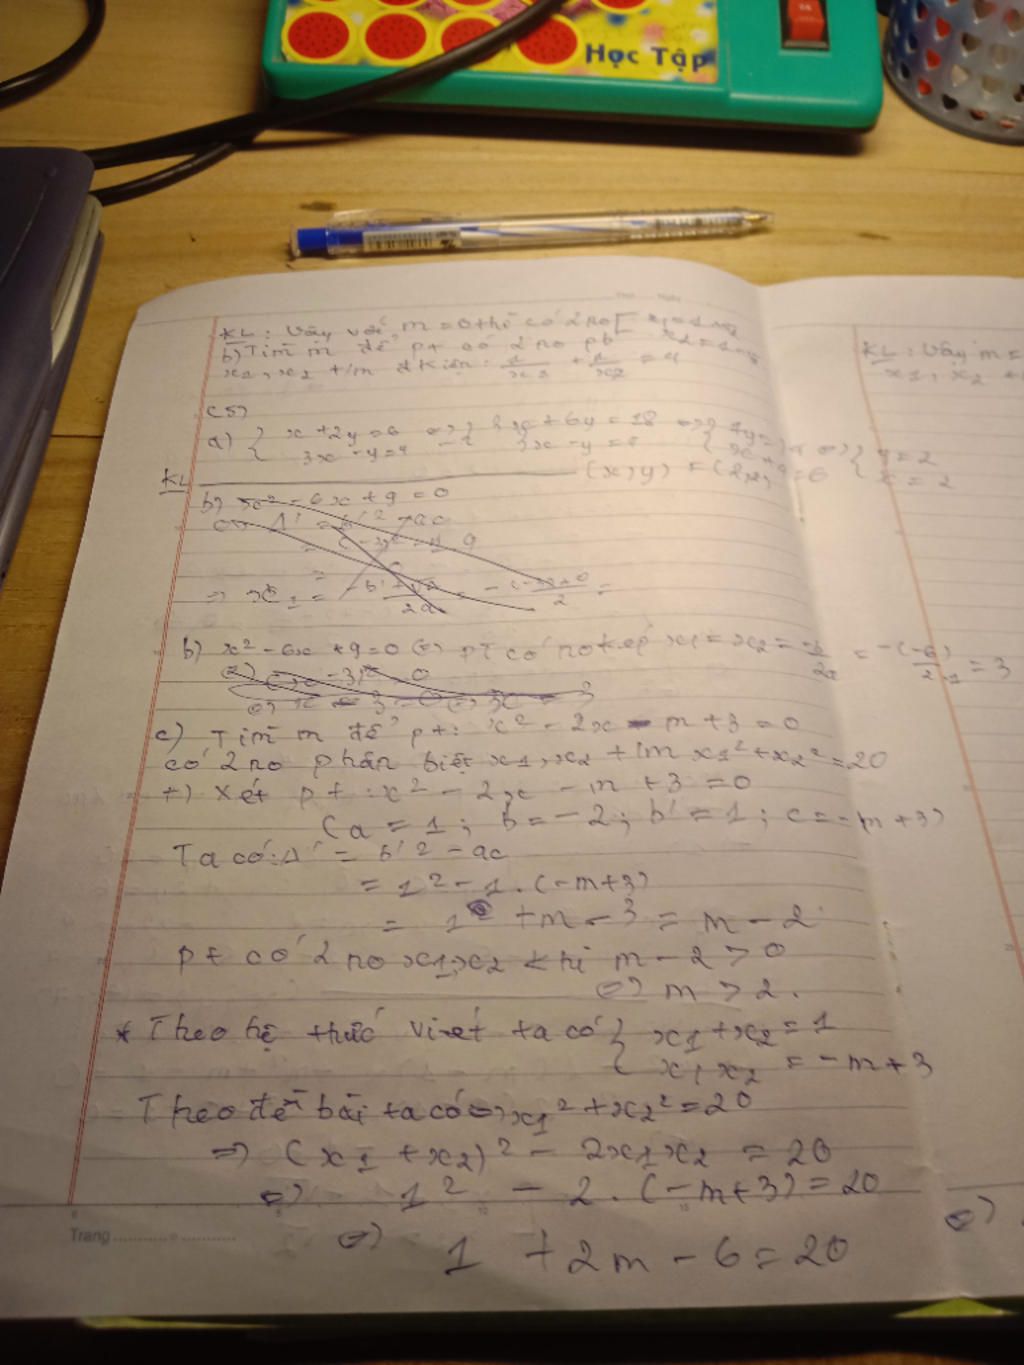 Học Tập
KL: Vậy với m = 0 thì có 2 no
b) Tìm m để pt có 2 no pb
x1, x2 t/m đkiện: 1/x1 + 1/x2 = 4
KL: Vậy m =
x1, x2
C5)
a) { x + 2y = 6
3x - y = 4
3x + 6y = 18
3x - y = 4
y = 2
x = 2
KL (x, y) = (2, 2)
b) x² - 6x + 9 = 0
Δ' = b'² - ac
b) x² - 6x + 9 = 0 <=> PT có no kép x1 = x2 = -b/2a = -(-6)/2.1 = 3
c) Tìm m để pt: x² - 2x - m + 3 = 0
có 2 no phân biệt x1, x2 t/m x1² + x2² = 20
+) Xét pt: x² - 2x - m + 3 = 0
(a = 1; b = -2; b' = 1; c = -m + 3)
Ta có: Δ' = b'² - ac
= 1² - 1.(-m+3)
= 1 + m - 3 = m - 2
pt có 2 no x1, x2 khi m - 2 > 0
<=> m > 2.
* Theo hệ thức viét ta có { x1 + x2 = 1
x1 x2 = -m + 3
Theo đề bài ta có => x1² + x2² = 20
=> (x1 + x2)² - 2x1x2 = 20
<=> 1² - 2.(-m+3) = 20
<=> 1 + 2m - 6 = 20
<=>
Trang